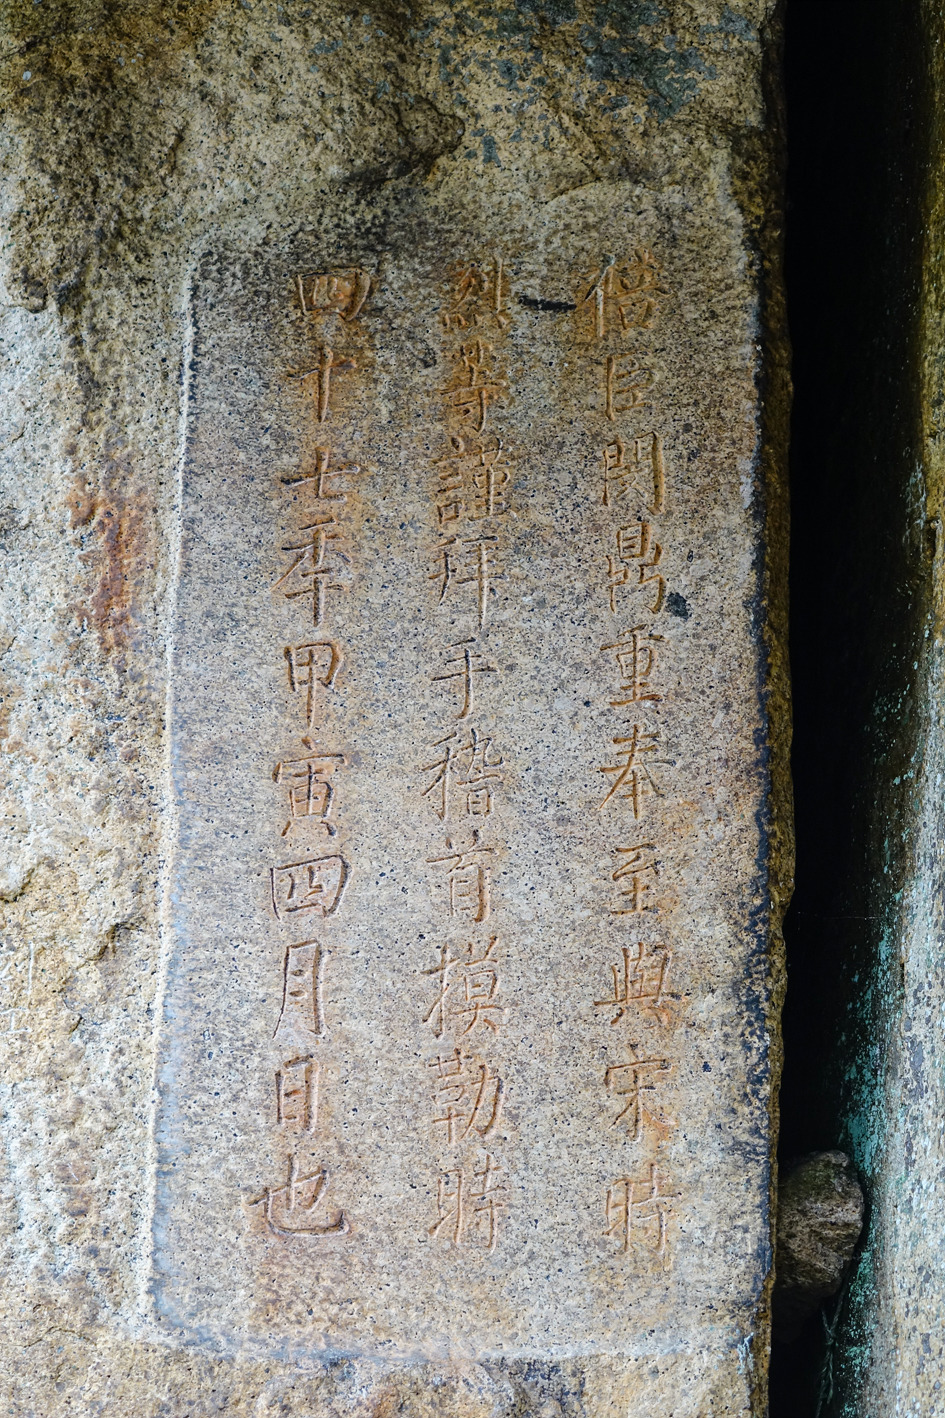 倍臣閔鼎重奉至與宋時
烈等謹拜手稽首摸勒時
四十七秊甲寅四月日也